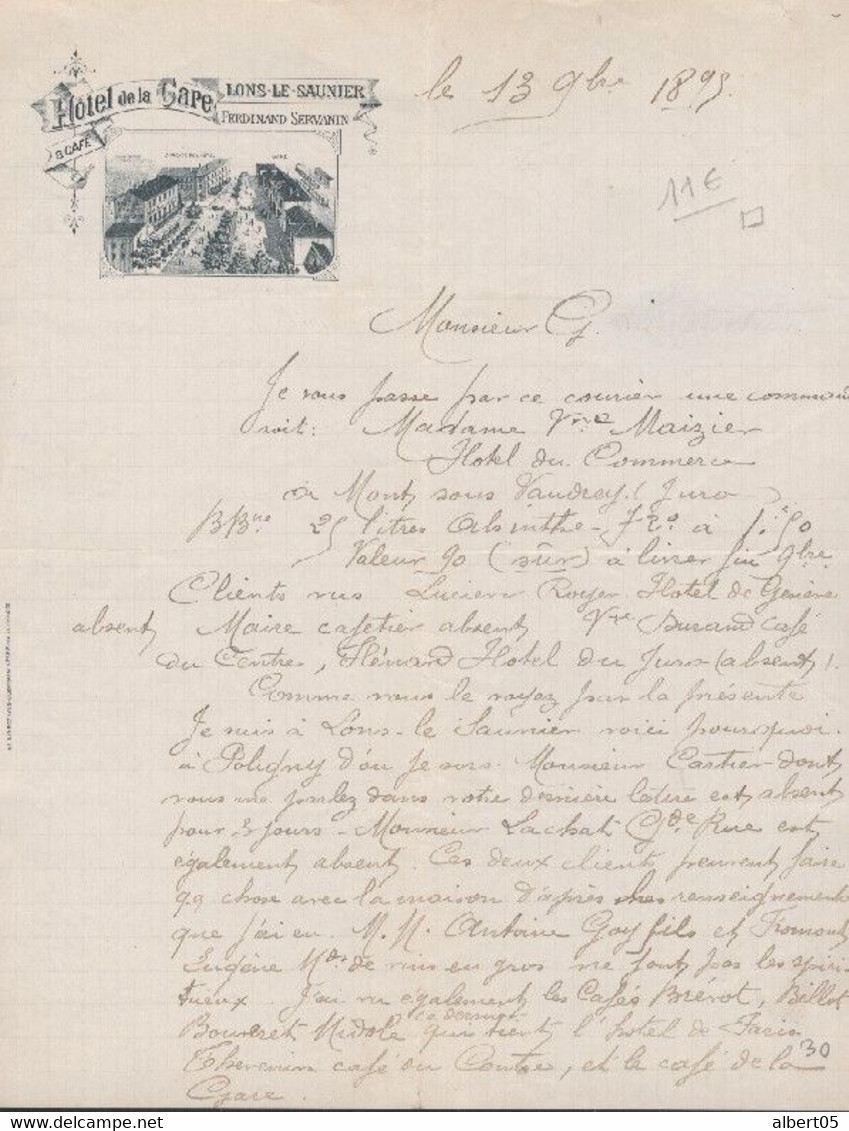 Hôtel de la Gare
& CAFÉ
LONS-LE-SAUNIER
FERDINAND SERVANIN
le 13 9bre 1895
11€
Monsieur G.
Je vous passe par ce courier une comman
soit: Madame Vve Maizier
Hotel du Commerce
à Mont sous Vaudrey (Jura)
BBne 25 litres Absinthe - 72° à 1f.50
Valeur 90 (sûr) à livrer fin 9bre
Clients vus Lucien Royer Hotel de Genève
absent, Maire cafetier absent, Vve Durand café
du Centre, Hénard Hotel du Jura (absent).
Comme vous le voyez par la présente
Je suis à Lons-le Saunier voici pourquoi.
à Poligny d'ou je sors. Monsieur Cartier dont
vous me parlez dans votre dernière lettre est absent
pour 3 jours - Monsieur Lachat Gde Rue est
également absent. Ces deux clients peuvent faire
qq chose avec la maison d'après les renseignements
que j'ai eu. M.M. Antoine Goy fils et Fromont
Eugène Mds de vins en gros ne font pas les spiri
tueux. J'ai vu également les Cafés Brévot, Billot
Bouveret Midole ce dernier qui tient l'hotel de Paris
Thevenin café du Centre, et le café de la
Gare.
30
albert05